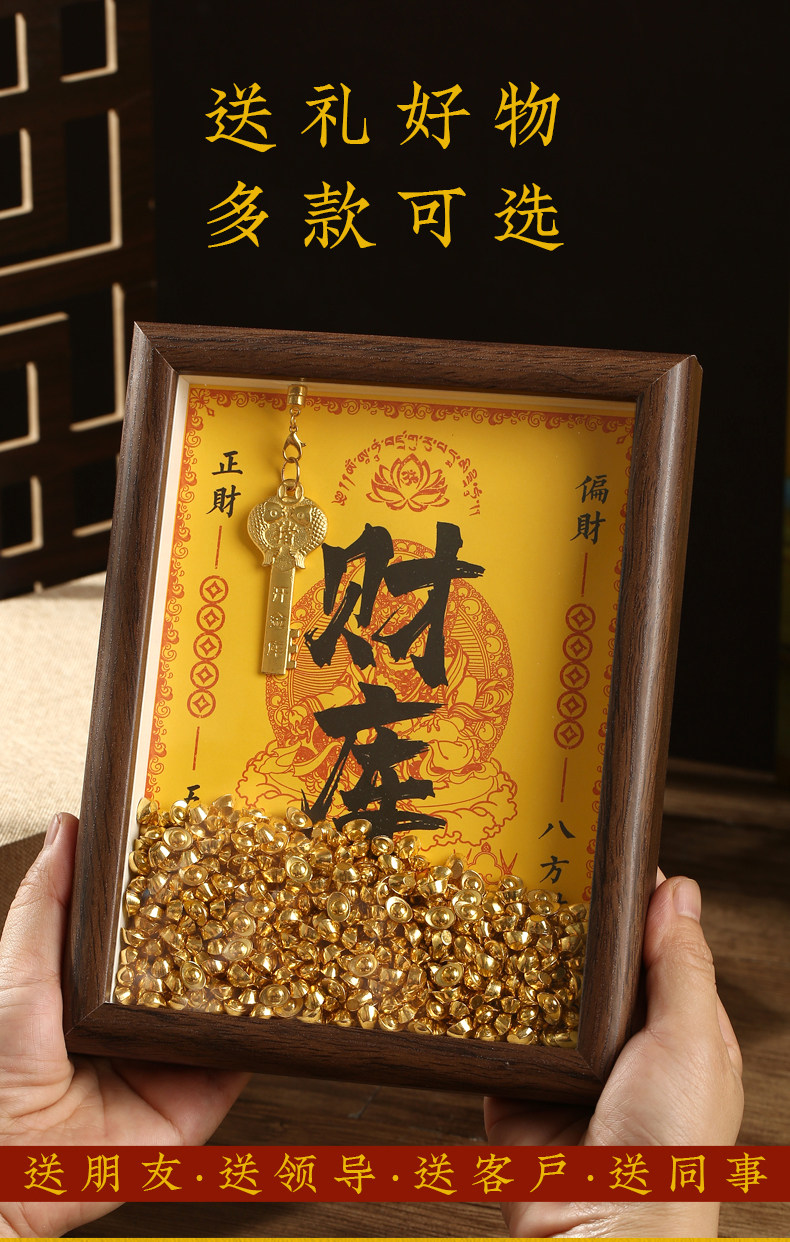 送礼好物
多款可选
正財
偏財
财库
八方
送朋友·送领导·送客戶·送同事